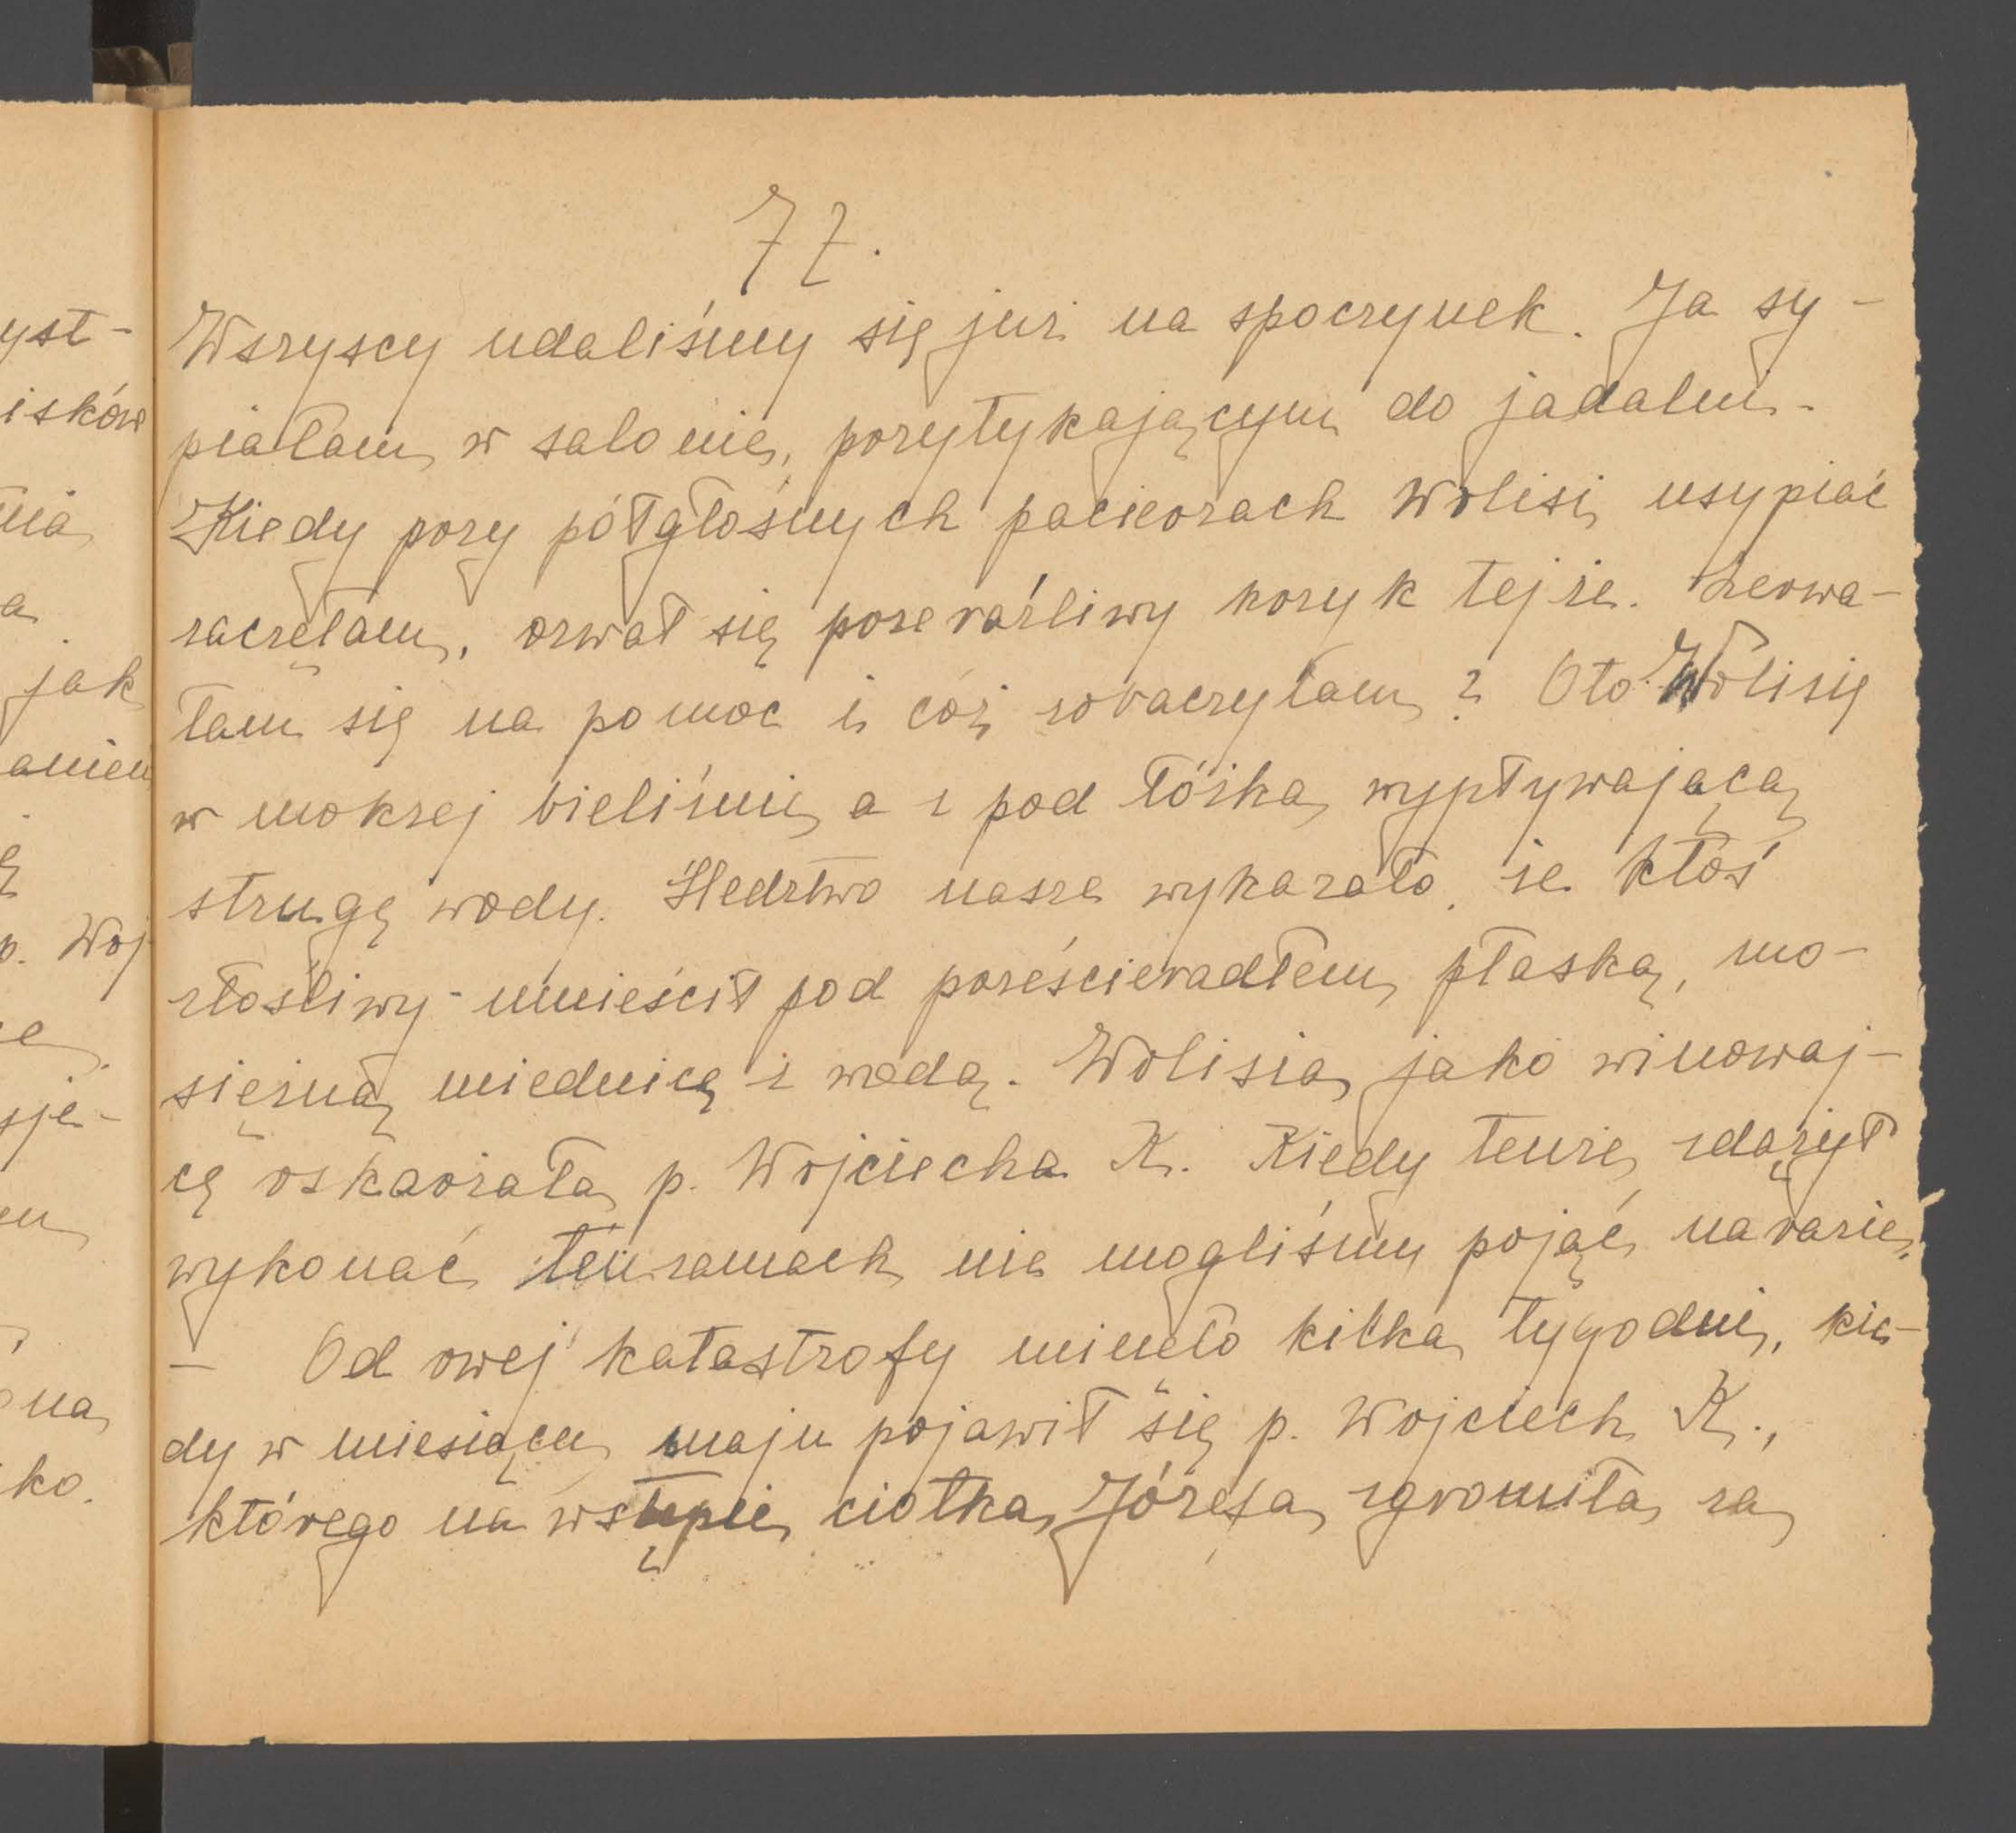 77.
yst-
isków
nia
a
jak
aniem
ę
p. Woj
e
sje-
em
na
ko.
Wszyscy udaliśmy się już na spoczynek. Ja sy-
piałam w salonie, przytykającym do jadalni.
Kiedy przy półgłośnych pacierzach Wolisi usypiać
zaczęłam, ozwał się przeraźliwy krzyk tejże. Zerwa-
łam się na pomoc i cóż zobaczyłam? Oto Wolisię
w mokrej bieliźnie a z pod łóżka wypływającą
strugę wody. Śledztwo nasze wykazało, że ktoś
złośliwy umieścił pod prześcieradłem płaską, mo-
siężną miednicę z wodą. Wolisia jako winowaj-
cę oskarżała p. Wojciecha K. Kiedy tenże zdążył
wykonać ten zamach nie mogliśmy pojąć na razie.
— Od owej katastrofy minęło kilka tygodni, kie-
dy w miesiącu maju pojawił się p. Wojciech K.,
którego na wstępie ciotka Józefa zgromiła za